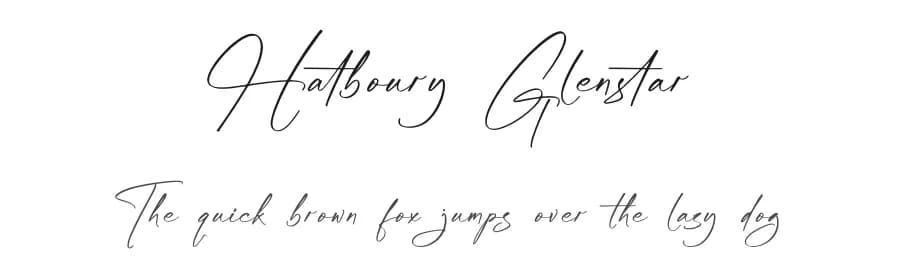 Hatboury Glenstar
The quick brown fox jumps over the lazy dog